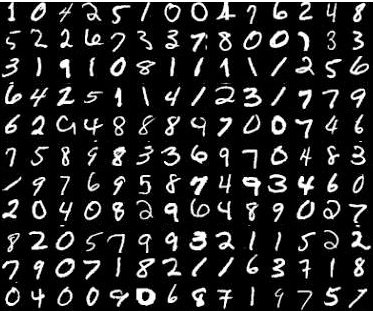 1 0 4 2 5 1 0 0 4 7 6 2 4 8
5 2 2 6 7 3 3 7 8 0 0 7 3 3
3 1 9 1 0 8 1 1 1 1 1 2 5 6
6 4 2 5 1 1 4 1 2 3 1 7 7 9
6 2 9 4 8 8 8 9 7 0 0 7 4 6
7 5 8 9 8 3 3 6 9 7 0 4 8 3
1 9 7 6 9 5 8 7 4 9 3 4 6 0
2 0 4 0 8 2 9 6 4 8 9 0 2 7
8 2 0 5 7 9 9 3 2 1 1 5 2 2
7 9 0 7 1 8 2 1 1 6 3 7 1 8
0 4 0 0 9 0 6 8 7 1 9 7 5 7